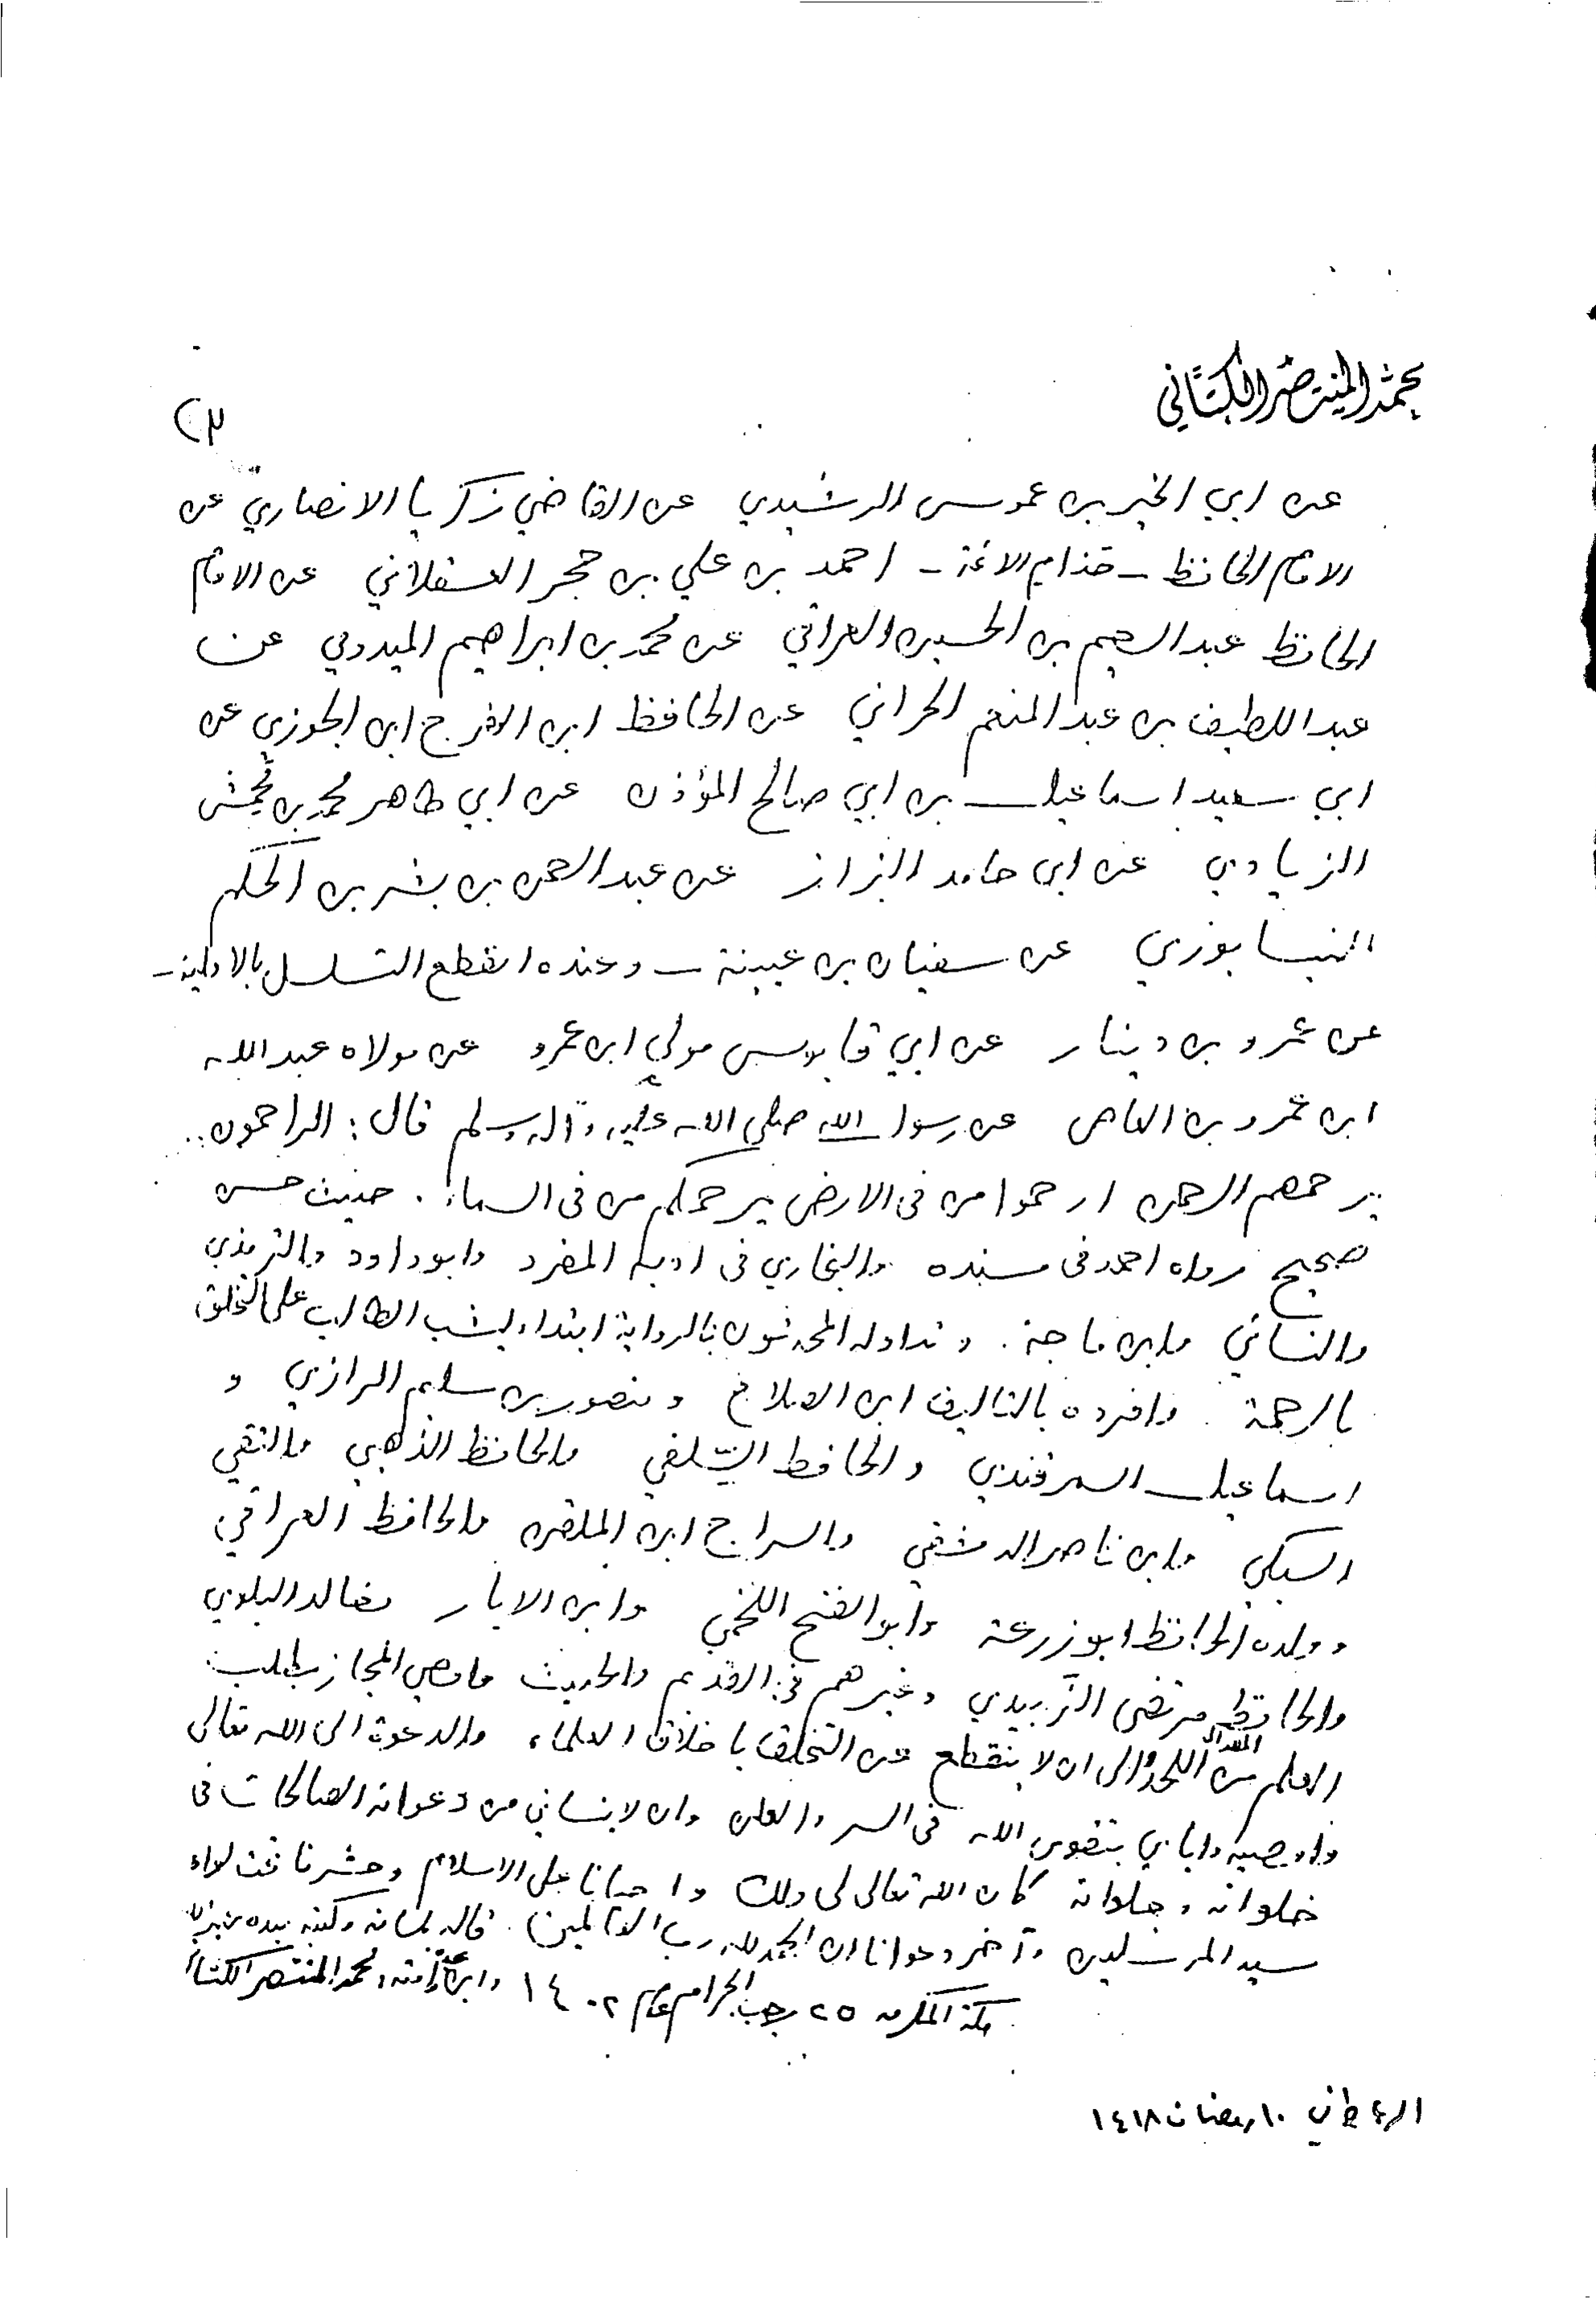 محمد المنتصر الكتاني
(٣
عن ابي الخير بن عموس الرشيدي عن القاضي زكريا الانصاري عن
الامام الحافظ - ختام الائمة - احمد بن علي بن حجر العسقلاني عن الامام
الحافظ عبد الرحيم بن الحسين العراقي عن محمد بن ابراهيم الميدومي عن
عبد اللطيف بن عبد المنعم الحراني عن الحافظ ابن الفرج ابن الجوزي عن
ابي سعيد اسماعيل بن ابي صالح المؤذن عن ابي طاهر محمد بن محمش
الزيادي عن ابي حامد البزاز عن عبد الرحمن بن بشر بن الحكم
النيسابوري عن سفيان بن عيينة - وعنده انقطع التسلسل بالاولية -
عن عمرو بن دينار عن ابي قابوس مولى ابن عمرو عن مولاه عبد الله
ابن عمرو بن العاص عن رسول الله صلى الله عليه وآله وسلم قال: الراحمون..
يرحمهم الرحمن ارحموا من فى الارض يرحمكم من فى السماء. حديث حسن
صحيح رواه احمد فى مسنده والبخاري فى ادبه المفرد وابو داود والترمذي
والنسائي وابن ماجة. وتداوله المحدثون بالرواية ابتداء ليشب الطالب على التخلق
بالرحمة. وافرده بالتاليف ابن الصلاح ومنصور بن سليم الرازي و
اسماعيل السمرقندي والحافظ السِّلفي والحافظ الذهبي والتقي
السبكي وابن ناصر الدمشقي والسراج ابن الملقن والحافظ العراقي
وولده الحافظ ابو زرعة وابو الفتح اللخمي وابن الابار وخالد البلوي
والحافظ مرتضى الزَّبيدي وغيرهم فى القديم والحديث واوصي المجاز بطلب
العلم من المهد الى اللحد والى ان لا ينقطع عن التخلق باخلاق العلماء والدعوة الى الله تعالى
واوصيه واياي بتقوى الله فى السر والعلن وان لا ينساني من دعواته الصالحات فى
خلواته وجلواته كان الله تعالى لي وله واحيانا على الاسلام وحشرنا تحت لواء
سيد المرسلين وآخر دعوانا ان الحمد لله رب العالمين. قاله بلسانه وكتبه بيده عبد الله
وابن عبده وأمته، محمد المنتصر الكتاني
مكة المكرمة ٢٥ رجب الحرام عام ١٤٠٢
١٠ رمضان ١٤١٨